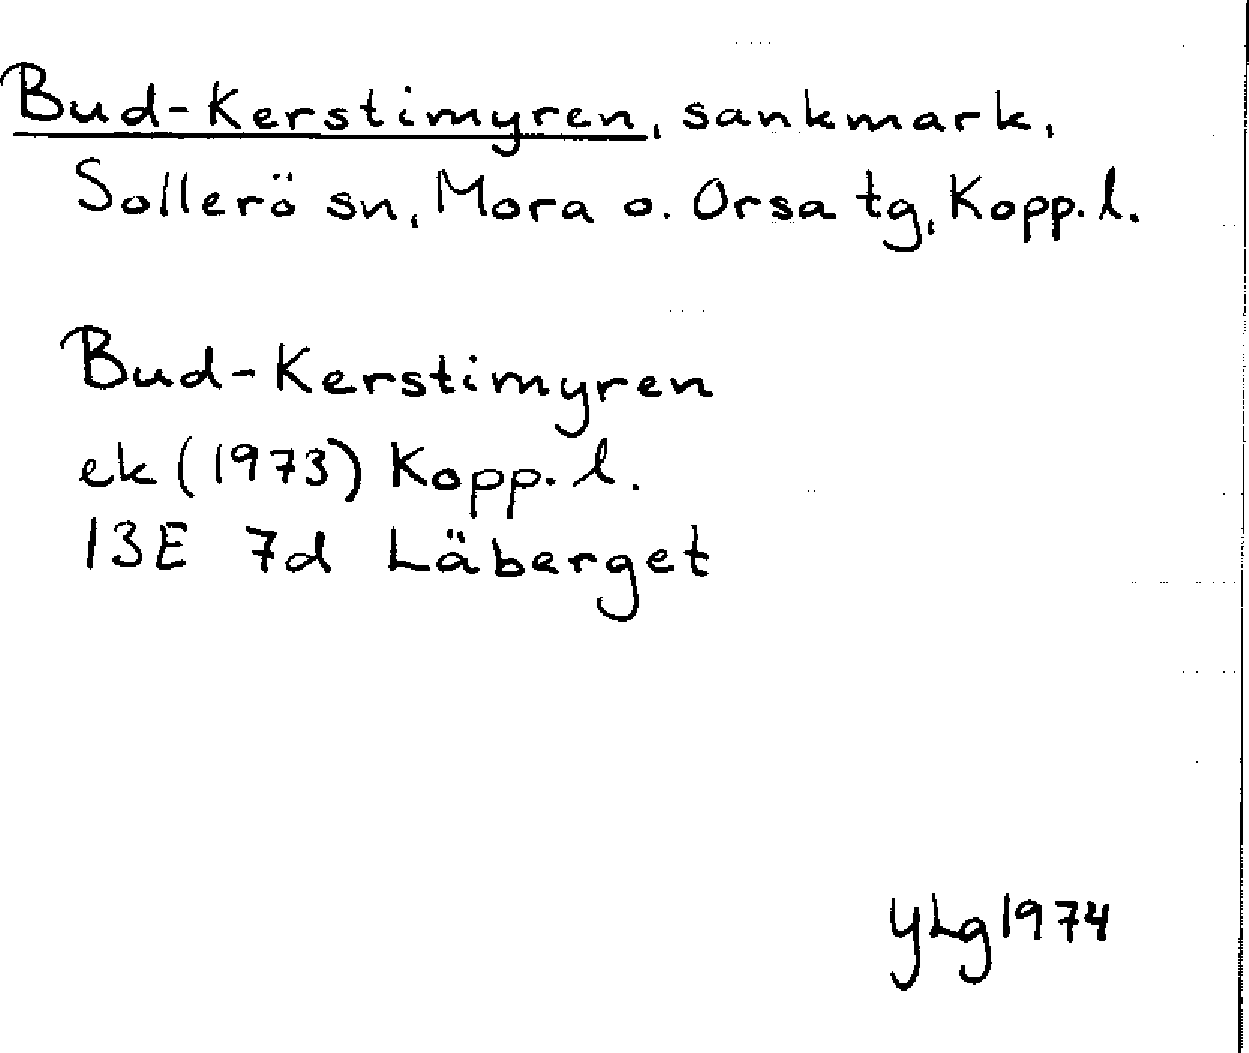 Bud-Kerstimyren, sankmark,
Sollerö sn, Mora o. Orsa tg, Kopp. l.
Bud-Kerstimyren
ek (1973) Kopp. l.
13E 7d Läberget
YLg 1974